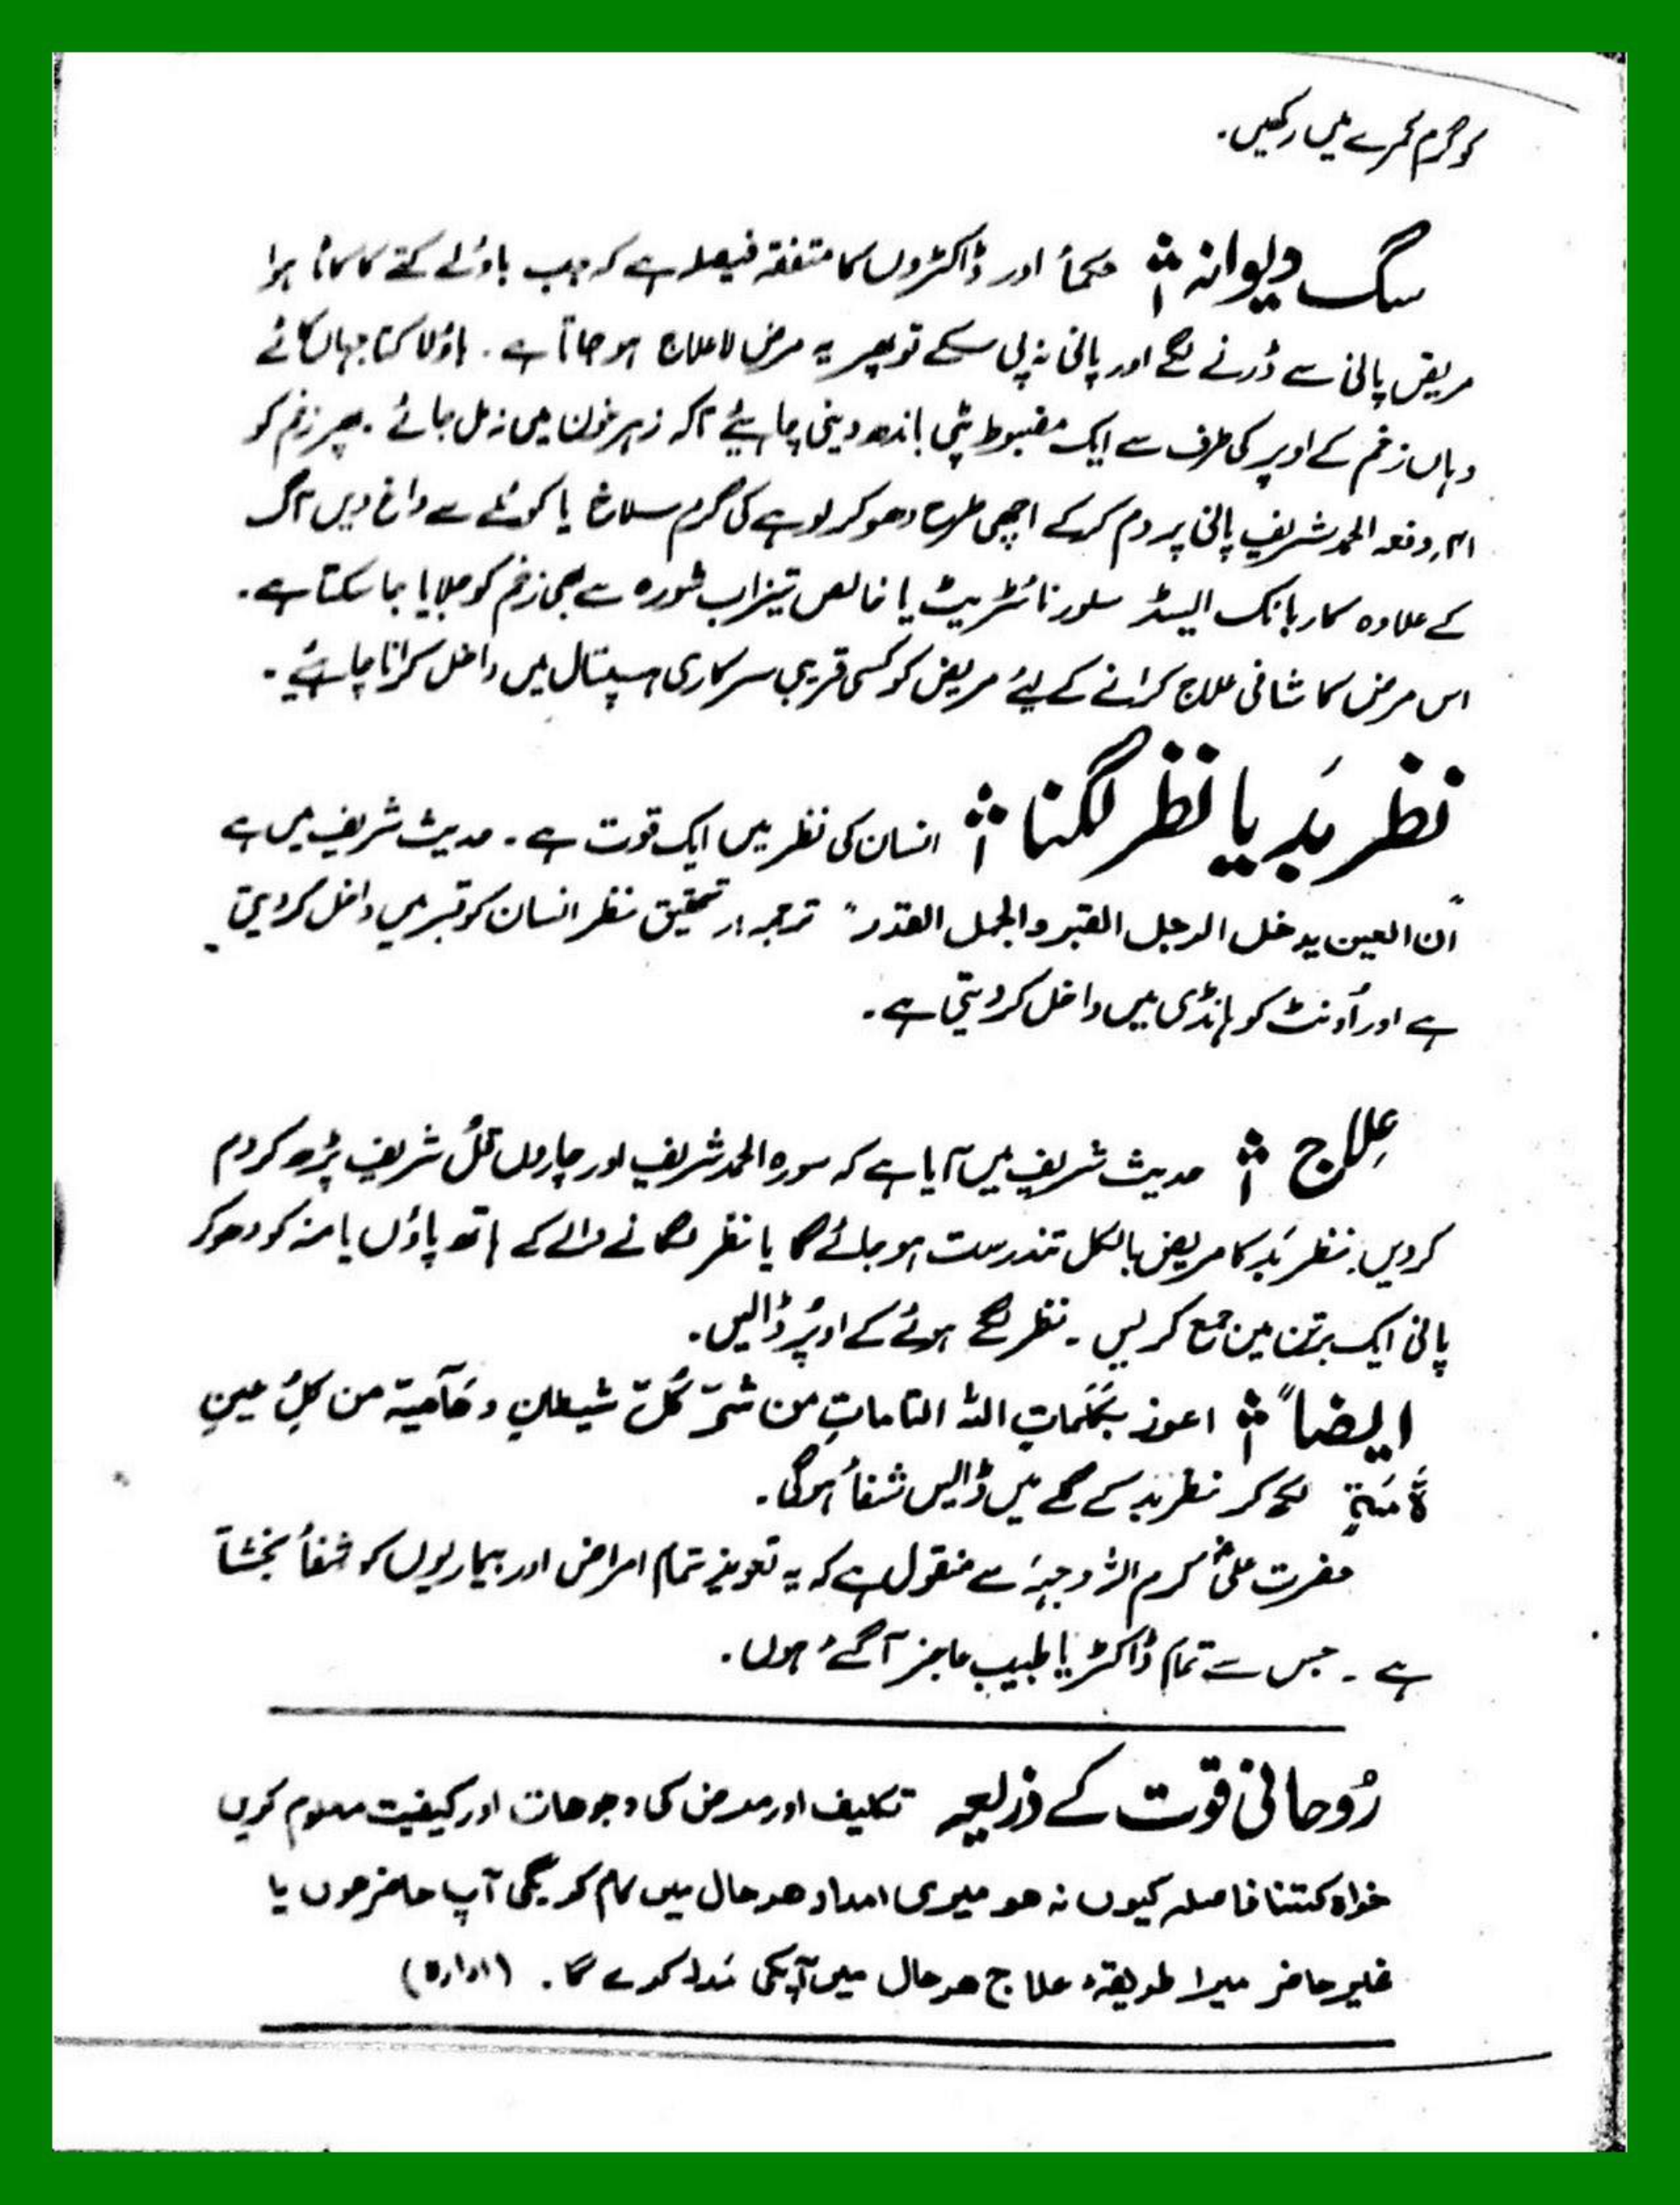 کو گرم کمرے میں رکھیں۔
سگ دیوانہ :۔ حکمأ اور ڈاکٹروں کا متفقہ فیصلہ ہے کہ جب باؤلے کتے کا کاٹا ہوا
مریض پانی سے ڈرنے لگے اور پانی نہ پی سکے تو پھر یہ مرض لاعلاج ہو جاتا ہے۔ باؤلا کتا جہاں کاٹے
وہاں زخم کے اوپر کی طرف سے ایک مضبوط پٹی باندھ دینی چاہیئے تاکہ زہر خون میں نہ مل جائے۔ پھر زخم کو
۴۱ دفعہ الحمد شریف پانی پر دم کرکے اچھی طرح دھو کر لوہے کی گرم سلاخ یا کوئلے سے داغ دیں آگ
کے علاوہ کاربانک ایسڈ سلور نائٹریٹ یا خالص تیزاب شورہ سے بھی زخم کو جلایا جا سکتا ہے۔
اس مرض کا شافی علاج کرانے کے لیئے مریض کو کسی قریبی سرکاری ہسپتال میں داخل کرانا چاہیئے۔
نظر بَد یا نظر لگنا :۔ انسان کی نظر میں ایک قوت ہے۔ حدیث شریف میں ہے
"ان العین یدخل الرجل القبر والجمل القدر" ترجمہ :۔ تحقیق نظر انسان کو قبر میں داخل کر دیتی
ہے اور اُونٹ کو ہانڈی میں داخل کر دیتی ہے۔
عِلاج :۔ حدیث شریف میں آیا ہے کہ سورہ الحمد شریف اور چاروں قلُ شریف پڑھ کر دم
کر دیں۔ نظر بَد کا مریض بالکل تندرست ہو جائے گا یا نظر لگانے والے کے ہاتھ پاؤں یا منہ کو دھو کر
پانی ایک برتن میں جمع کر لیں۔ نظر لگے ہوئے کے اوپُر ڈالیں۔
ایضاً :۔ اعوذ بکَلمَاتِ اللہ التاماتِ من شرِّ کُلّ شیطانٍ وھَآمۃ من کلِ عینٍ
لاَّمَۃٍ لکھ کر نظر بد کے گلے میں ڈالیں شفأ ہوگی۔
حضرت علیؓ کرم اللہ وجہہَ سے منقول ہے کہ یہ تعویذ تمام امراض اور بیماریوں کو شفأ بخشتا
ہے۔ جس سے تمام ڈاکٹر یا طبیب عاجز آگئے ہوں۔
رُوحانی قوت کے ذریعہ تکلیف اور مرض کی وجوہات اور کیفیت معلوم کریں
خواہ کتنا فاصلہ کیوں نہ ہو میری امداد ہر حال میں کام کریگی آپ حاضر ہوں یا
غیر حاضر میرا طریقۂ علاج ہر حال میں آپکی مَدد کرے گا۔ (ادارہ)